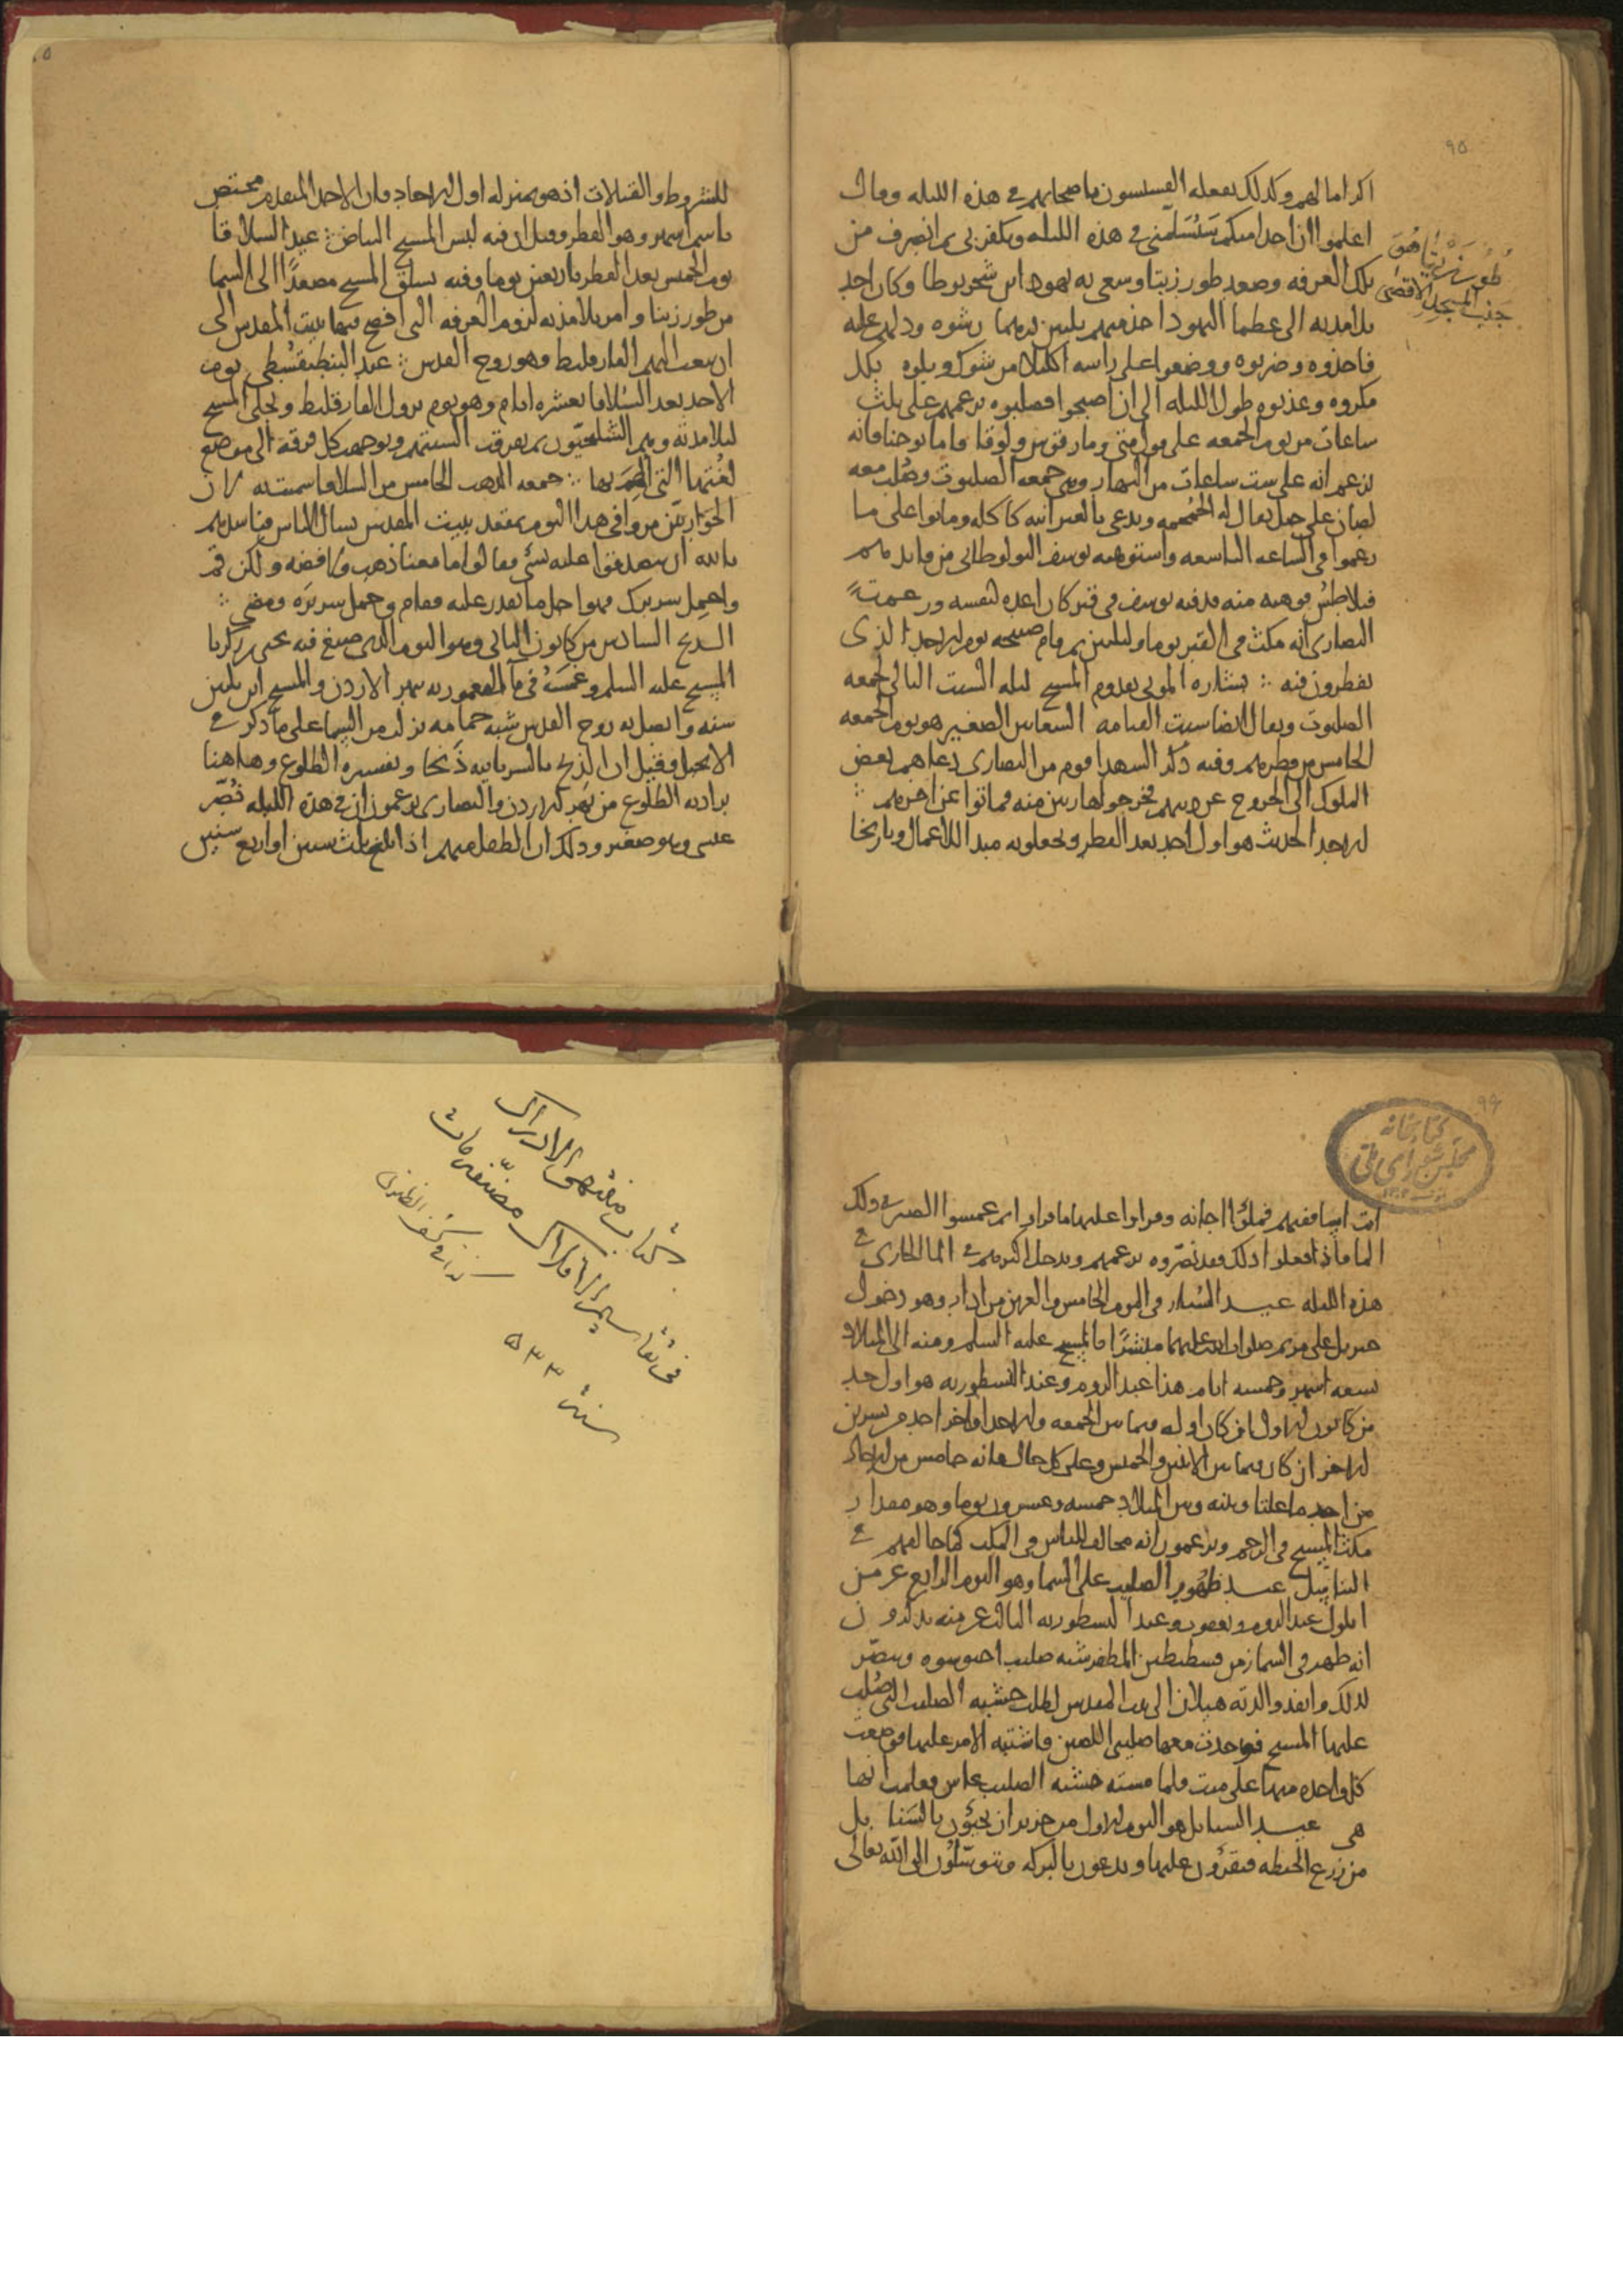 ٩٥
اكراما لهم وكذلك يفعله القسيسون باصحابهم في هذه الليله وقال
اعلموا ان احدا منكم سَيُسَلّمني في هذه الليله ويكفر بي ثم انصرف من
تلك الغرفه وصعد طور زيتا وسعى به يهودا بن شحريوطا وكان احد
تلامذته الى عظما اليهود اخذ منهم ثلثين درهما رشوه ودلهم عليه
فاخذوه وضربوه ووضعوا على راسه اكليلا من شوك وبلوه بكل
مكروه وعذبوه طول الليله الى ان اصبحوا فصلبوه بزعمهم على ثلث
ساعات من يوم الجمعه على قول متى ومارقوس ولوقا واما يوحنا فانه
يزعم انه على ست ساعات من النهار وهي جمعه الصلبوت وصُلب معه
لصان على جبل يقال له الجُمجمه ويدعى بالعبرانيه كاكله وماتوا على ما
زعموا في الساعه التاسعه واستوهبه يوسف من قايدهم
فيلاطُس فوهبه منه فدفنه يوسف في قبر كان اعده لنفسه وزعمت
النصارى انه مكث في القبر يوما وليلتين ثم قام صبيحه يوم الاحد الذي
يفطرون فيه ∴ بشاره الموتى بقدوم المسيح ليله السبت التالى لجمعه
الصلبوت ويقال ايضا سبت القيامه السعانين الصغير هو يوم الجمعه
الخامس من فطرهم وفيه ذكر الشهدا قوم من النصارى دعاهم بعض
الملوك الى الخروج عن دينهم فخرجوا هاربين منه فماتوا عن اخرهم ∴
الاحد الحديث هو اول احد بعد الفطر ويجعلونه مبدا للاعمال وتاريخا
طُور زَيْتَا هُوَ
جَنْبَ المسجد الاقصى
للشروط والقبالات اذ هو بمنزله اول الاحاد فان الاحد المتقدم مختص
باسم اشهر وهو الفطر وقيل ان فيه لبس المسيح البياض ∴ عيد السلاقا
يوم الخميس بعد الفطر باربعين يوما وفيه تسلق المسيح مصعدًا الى السما
من طور زيتا وامر تلامذته لزوم الغرفه التى افصح فيها ببيت المقدس الى
ان يبعث اليهم الفارقليط وهو روح القدس ∴ عيد البنطيقسطي يوم
الاحد بعد السُلاقا بعشره ايام وهو يوم نزول الفارقليط وتجلى المسيح
لتلامذته وهم الشلحيّون ثم تفرقت السنتهم وتوجهت كل فرقه الى موضع
لغتها التي الهم بها ∴ جمعه الذهب الخامس من السلاقا سميت به لان
الحواريّين مروا في هذا اليوم بمقعد ببيت المقدس يسال الناس فناشدهم
بالله ان يتصدقوا عليه بشي فقالوا ما معنا ذهب ولا فضه ولكن قم
واحمِل سريرك فهو اجل ما نقدر عليه فقام وحمل سريرَه ومضى ∴
الدنح السادس من كانون الثاني وهو اليوم الذي صبغ فيه يحيى بن زكريا
المسيح عليه السلم وغمسه في ما المعموديه بنهر الاردن والمسيح ابن ثلثين
سنه واتصل به روح القدس شبه حمامه نزلت من السما على ما ذكر في
الانجيل وقيل ان الدنح بالسريانيه دَنحَا وتفسيره الطلوع وهاهنا
يراد به الطلوع من نهر الاردن والنصارى يزعمون ان في هذه الليله نُصّر
عيسى وهو صغير وذلك ان الطفل منهم اذا بلغ ثلث سنين او اربع سنين
٩٦
كتابخانه
مجلس شورای ملی
وقسيسهم فملوا اجانه وقراوا عليها ما قراوا ثم غمسوا الصبي ذلك
الما فاذا فعلوا ذلك فقد نصّروه بزعمهم ويدخل اكثرهم في الما الجاري في
هذه الليله عيد السُبّار في اليوم الخامس والعشرين من اذار وهو دخول
جبريل على مريم صلوات الله عليهما مبشرًا بالمسيح عليه السلم ومنه الى الميلاد
تسعه اشهر وخمسه ايام هذا عند الروم وعند النسطوريه هو اول احد
من كانون الاول ان كان اوله فيما بين الجمعه والاحد او اخر احد من تشرين
الاخر ان كان فيما بين الاثنين والخميس وعلى كل حال فانه خامس من الاحاد
من احد ماعلتا وبينه وبين الميلاد خمسه وعشرون يوما وهو مقدار
مكث المسيح في الرحم ويزعمون انه مخالف للناس في المكث كما خالفهم في
التناسل عيد ظهور الصليب على السما وهو اليوم الرابع عشر من
ايلول عند الروم ويعقوب وعند النسطوريه الثالث عشر منه يذكرون
انه ظهر في السما زمن قسطنطين المظفر شبه صليب وتنصّر
لذلك وانفذ والدته هيلاني الى بيت المقدس لطلب خشبه الصليب التي صُلب
عليها المسيح فوجدت معها صليبي اللصين واشتبه الامر عليها فوضعت
كل واحده منها على ميت فلما مسته خشبه الصليب عاش فعلمت انها
هي عيد السنابل هو اليوم الاول من حزيران يجيؤن بالسنابل
من زرع الحنطه فيقرؤن عليها ويدعون بالبركه ويتوسّلون الى الله تعالى
كتاب منتهى الادراك
في تقاسيم الافلاك مصنّفه مات
سنه ٥٣٣
كذا في كشف الظنون